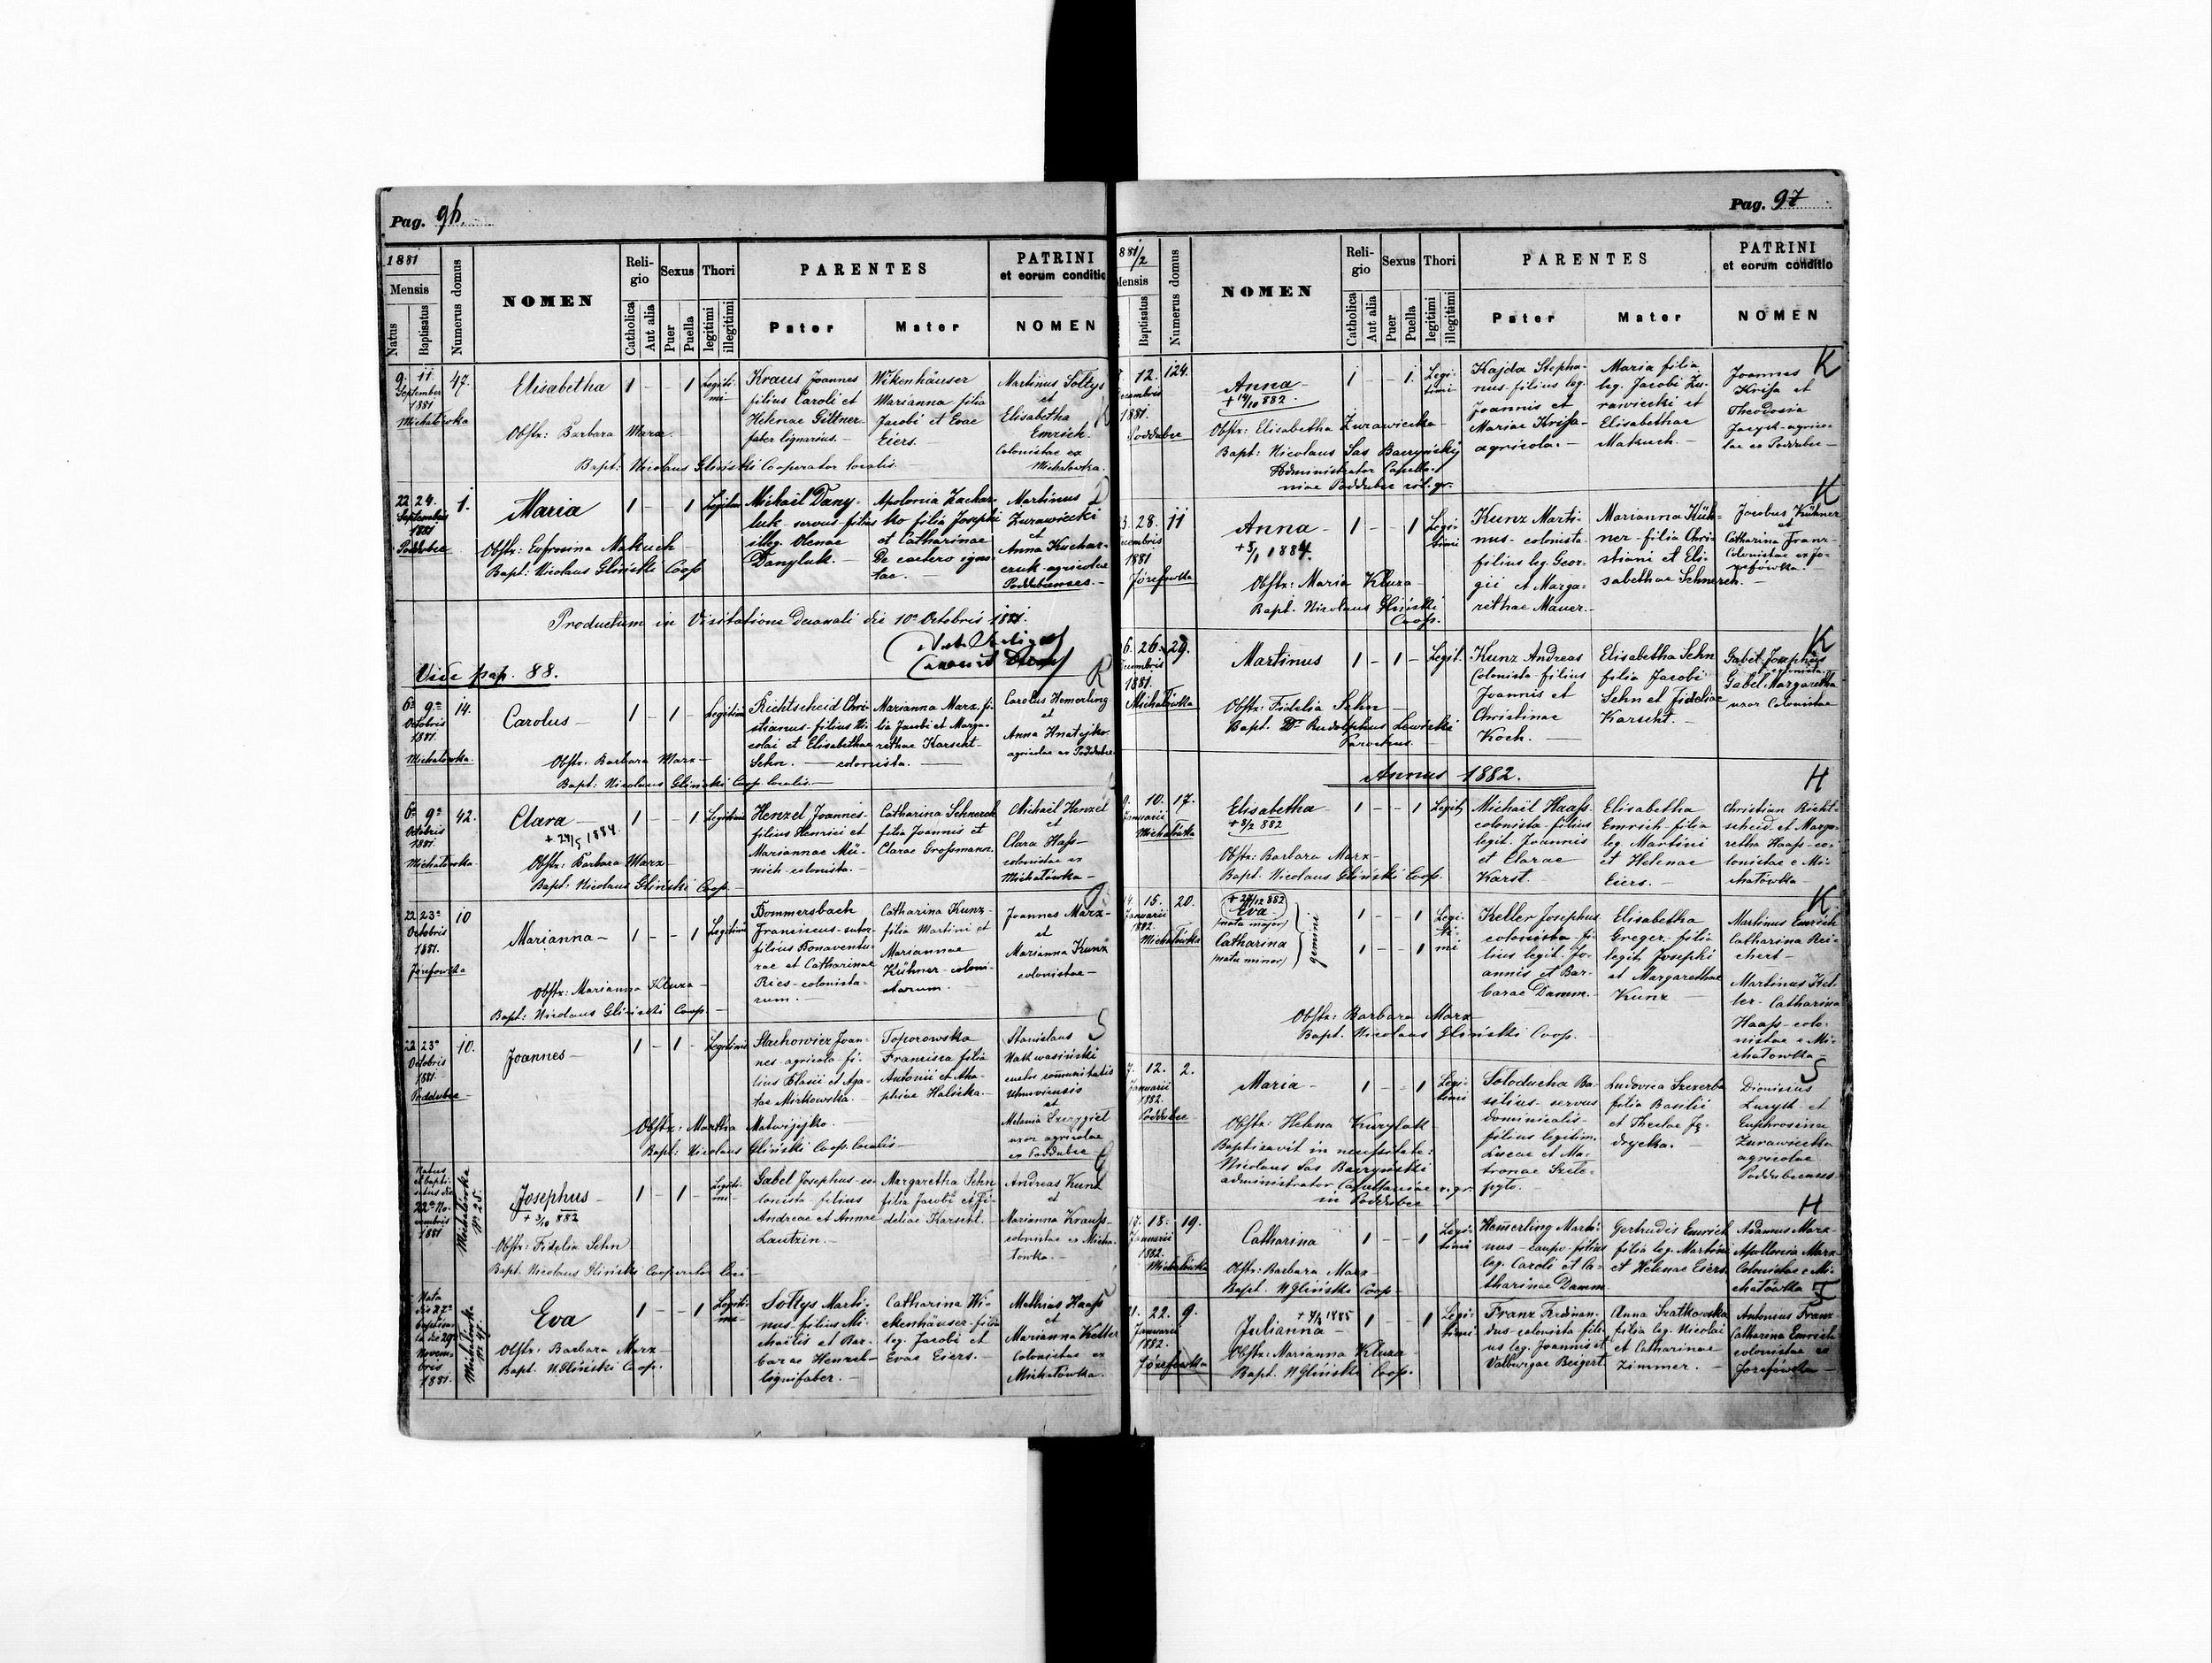 Pag. 96.
1881
Mensis
Natus
Baptisatus
Numerus domus
NOMEN
Religio
Catholica
Aut alia
Sexus
Puer
Puella
Thori
legitimi
illegitimi
PARENTES
Pater
Mater
PATRINI
et eorum conditio
NOMEN
9. 11. 47.
September
1881
Michałówka
Elisabetha
1 - - 1
Legiti-
mi-
Obstr: Barbara Marx.
Bapt: Nicolaus Gliński Cooperator localis.
Kraus Joannes
filius Caroli et
Helenae Gittner-
faber lignarius.
Wikenhäuser
Marianna filia
Jacobi et Evae
Eiers.
Martinus Sołtys
et
Elisabetha
Emrich
Colonistae ex
Michałówka.
22 24. 1.
Septembris
1881
Poddubce
Maria
1 - - 1
Obstr: Eufrosina Makuch
Bapt: Nicolaus Gliński Coop
Michail Dany-
luk servus filius
illeg. Olenae
Danyluk.
Apolonia Zachar-
ko filia Josephi
et Catharinae
De caetero igno-
tae.
Martinus
Zurawiecki
et
Anna Kuchar-
czuk agricolae
Poddubienses.
Productum in Visitatione Decanali die 10a Octobris 1881.
Vide pag. 88.
R
6a 9a 14.
Octobris
1881.
Michałówka.
Carolus
1 - 1 -
Obstr: Barbara Marx
Bapt: Nicolaus Gliński Coop localis.
Richtscheid Chri-
stianus filius Ni-
colai et Elisabethae
Sehn. colonista.
Marianna Marx fi-
lia Jacobi et Marga-
rethae Karscht.
Carolus Hemerling
et
Anna Hnatejko
agricolae ex Poddubce
6a 9a 42.
Octobris
1881.
Michałówka
Clara
+ 24/5 1884.
1 - - 1
Obstr: Barbara Marx
Bapt: Nicolaus Gliński Coop
Henzel Joannes
filius Henrici et
Mariannae Mü-
nich colonista.
Catharina Schnerch
filia Joannis et
Clarae Grossmann.
Michaël Henzel
et
Clara Hass-
colonistae ex
Michałówka
22 23a 10
Octobris
1881.
Józefówka
Marianna
1 - - 1
Obstr: Marianna Kluza
Bapt: Nicolaus Gliński Coop.
Bommersbach
Franciscus sutor
filius Bonaventu-
rae et Catharinae
Ries colonista-
rum.
Catharina Kunz
filia Martini et
Mariannae
Kühner coloni-
starum.
Joannes Marx
et
Marianna Kunz
colonistae
S
22 23a 10.
Octobris
1881.
Poddubce
Joannes
1 - 1 -
Obstr: Martha Matwijejko.
Bapt: Nicolaus Gliński Coop. localis
Stachowicz Joan-
nes agricola fi-
lius Blasii et Aga-
tae Mirkowska.
Toporowska
Francisca filia
Antonii et Aga-
phiae Halicka.
Stanislaus
communitatis
Uhnoviensis
et
Melania
uxor agricolae
ex Poddubce
G
Natus
et bapti-
satus die
22a No-
vembris
1881
Michałówka
Nr 25.
Josephus
+ 3/10 882
1 - 1 -
Legiti-
mi-
Obstr: Fidelia Sehn
Bapt. Nicolaus Gliński Cooperator loci
Gabel Josephus co-
lonista filius
Andreae et Annae
Lautzin.
Margaretha Sehn
filia Jacobi et Fi-
deliae Karscht.
Andreas Kunz
et
Marianna Krauss-
colonistae ex Micha-
łówka.
Nata
die 27a
baptisa-
ta die 29a
Novem-
bris
1881.
Michałówka
Nr 47.
Eva
1 - - 1
Obstr: Barbara Marx
Bapt. N. Gliński Coop.
Sołtys Marti-
nus filius Mi-
chaëlis et Bar-
barae Henzel
lignifaber.
Catharina Wi-
ckenhäuser filia
leg. Jacobi et
Evae Eiers.
Mathias Haass
et
Marianna Keller
Colonistae ex
Michałówka.
Pag. 97
881/2
Mensis
Baptisatus
Numerus domus
NOMEN
Religio
Catholica
Aut alia
Sexus
Puer
Puella
Thori
legitimi
illegitimi
PARENTES
Pater
Mater
PATRINI
et eorum conditio
NOMEN
K
12. 124.
1881.
Poddubce
Anna
+ 14/10 882.
1 - - 1.
Legi-
timi
Obstr: Elisabetha Zurawiecka
Bapt: Nicolaus Sas Baczyński
Administrator Capella-
niae Poddubce rit. gr.
Kajda Stepha-
nus filius leg.
Joannis et
Mariae Krisa
agricola.
Maria filia
leg. Jacobi Zu-
rawiecki et
Elisabethae
Makuch.
Joannes
Krisa et
Theodosia
agrico-
lae ex Poddubce
K
28. 11
1881
Józefówka
Anna
+ 5/1 1884.
1 - - 1
Legi-
timi
Obstr: Maria Kluza
Bapt. Nicolaus Gliński
Coop.
Kunz Marti-
nus colonista
filius leg. Geor-
gii et Marga-
rethae Mauer.
Marianna Küh-
ner filia Chris-
tiani et Eli-
sabethae Schnerch.
Jacobus Kühner
et
Catharina Franz
Colonistae ex Jo-
zefówka.
K
26. 29.
1881.
Michałówka
Martinus
1 - 1 -
Legit.
Obstr: Fidelia Sehn
Bapt. Dr Rudolphus Lewicki
Parochus.
Kunz Andreas
Colonista filius
Joannis et
Christinae
Koch.
Elisabetha Sehn
filia Jacobi
Sehn et Fideliae
Karscht.
Gabel Josephus
Gabel Margaretha
uxor Colonistae
Annus 1882.
H
10. 17.
Januarii
Michałówka
Elisabetha
+ 8/2 882
1 - - 1
Obstr: Barbara Marx
Bapt. Nicolaus Gliński Coop.
Michaël Haass
colonista filius
legit. Joannis
et Clarae
Karst.
Elisabetha
Emrich filia
leg. Martini
et Helenae
Eiers.
Christian Richt-
scheid et Marga-
retha Haass co-
lonistae e Mi-
chałówka
K
15. 20.
Januarii
1882.
Michałówka
+ 27/12 882
Eva
(nata major)
Catharina
(nata minor)
gemini
1 - - 1
1 - - 1
Legi-
ti-
mi
Obstr: Barbara Marx
Bapt. Nicolaus Gliński Coop.
Keller Josephus
colonista fi-
lius legit. Jo-
annis et Bar-
barae Damm.
Elisabetha
Greger filia
legit. Josephi
et Margarethae
Kunz
Martinus Emrich
Catharina Rei-
chert
Martinus Kel-
ler Catharina
Haass colo-
nistae e Mi-
chałówka
S
12. 2.
Januarii
1882.
Poddubce
Maria
1 - - 1
Legi-
timi
Obstr: Helena Kuryłak
Baptizavit in necessitate:
Nicolaus Sas Baczyński
administrator Capellaniae r. gr.
in Poddubce
Sołoducha Ba-
silius servus
dominicalis
filius legitim.
Lucae et Ma-
tronae Szele-
pyto.
Ludovica Szczerba
filia Basilii
et Theclae Ję-
drycka.
Dionisius
et
Euphrosina
Zurawiecka
agricolae
Poddubienses
H
17. 18. 19.
Januarii
1882.
Michałówka
Catharina
1 - - 1
Legi-
timi
Obstr: Barbara Marx
Bapt. N Gliński Coop
Hemerling Marti-
nus caupo filius
leg. Caroli et Ca-
tharinae Damm
Gertrudis Emrich
filia leg. Martini
et Helenae Eiers.
Adamus Marx
Apollonia Marx
Colonistae e Mi-
chałówka
F
21. 22. 9.
Januarii
1882.
Józefówka
Julianna
1 - - 1
Legi-
timi
Obstr: Marianna Kluza
Bapt. N Gliński Coop.
Franz Ferdinan-
dus colonista fili-
us leg. Joannis et
Valburgae Beigert
Anna Szatkowska
filia leg. Nicolai
et Catharinae
Zimmer.
Antonius Franz
Catharina Emrich
colonistae ex
Józefówka